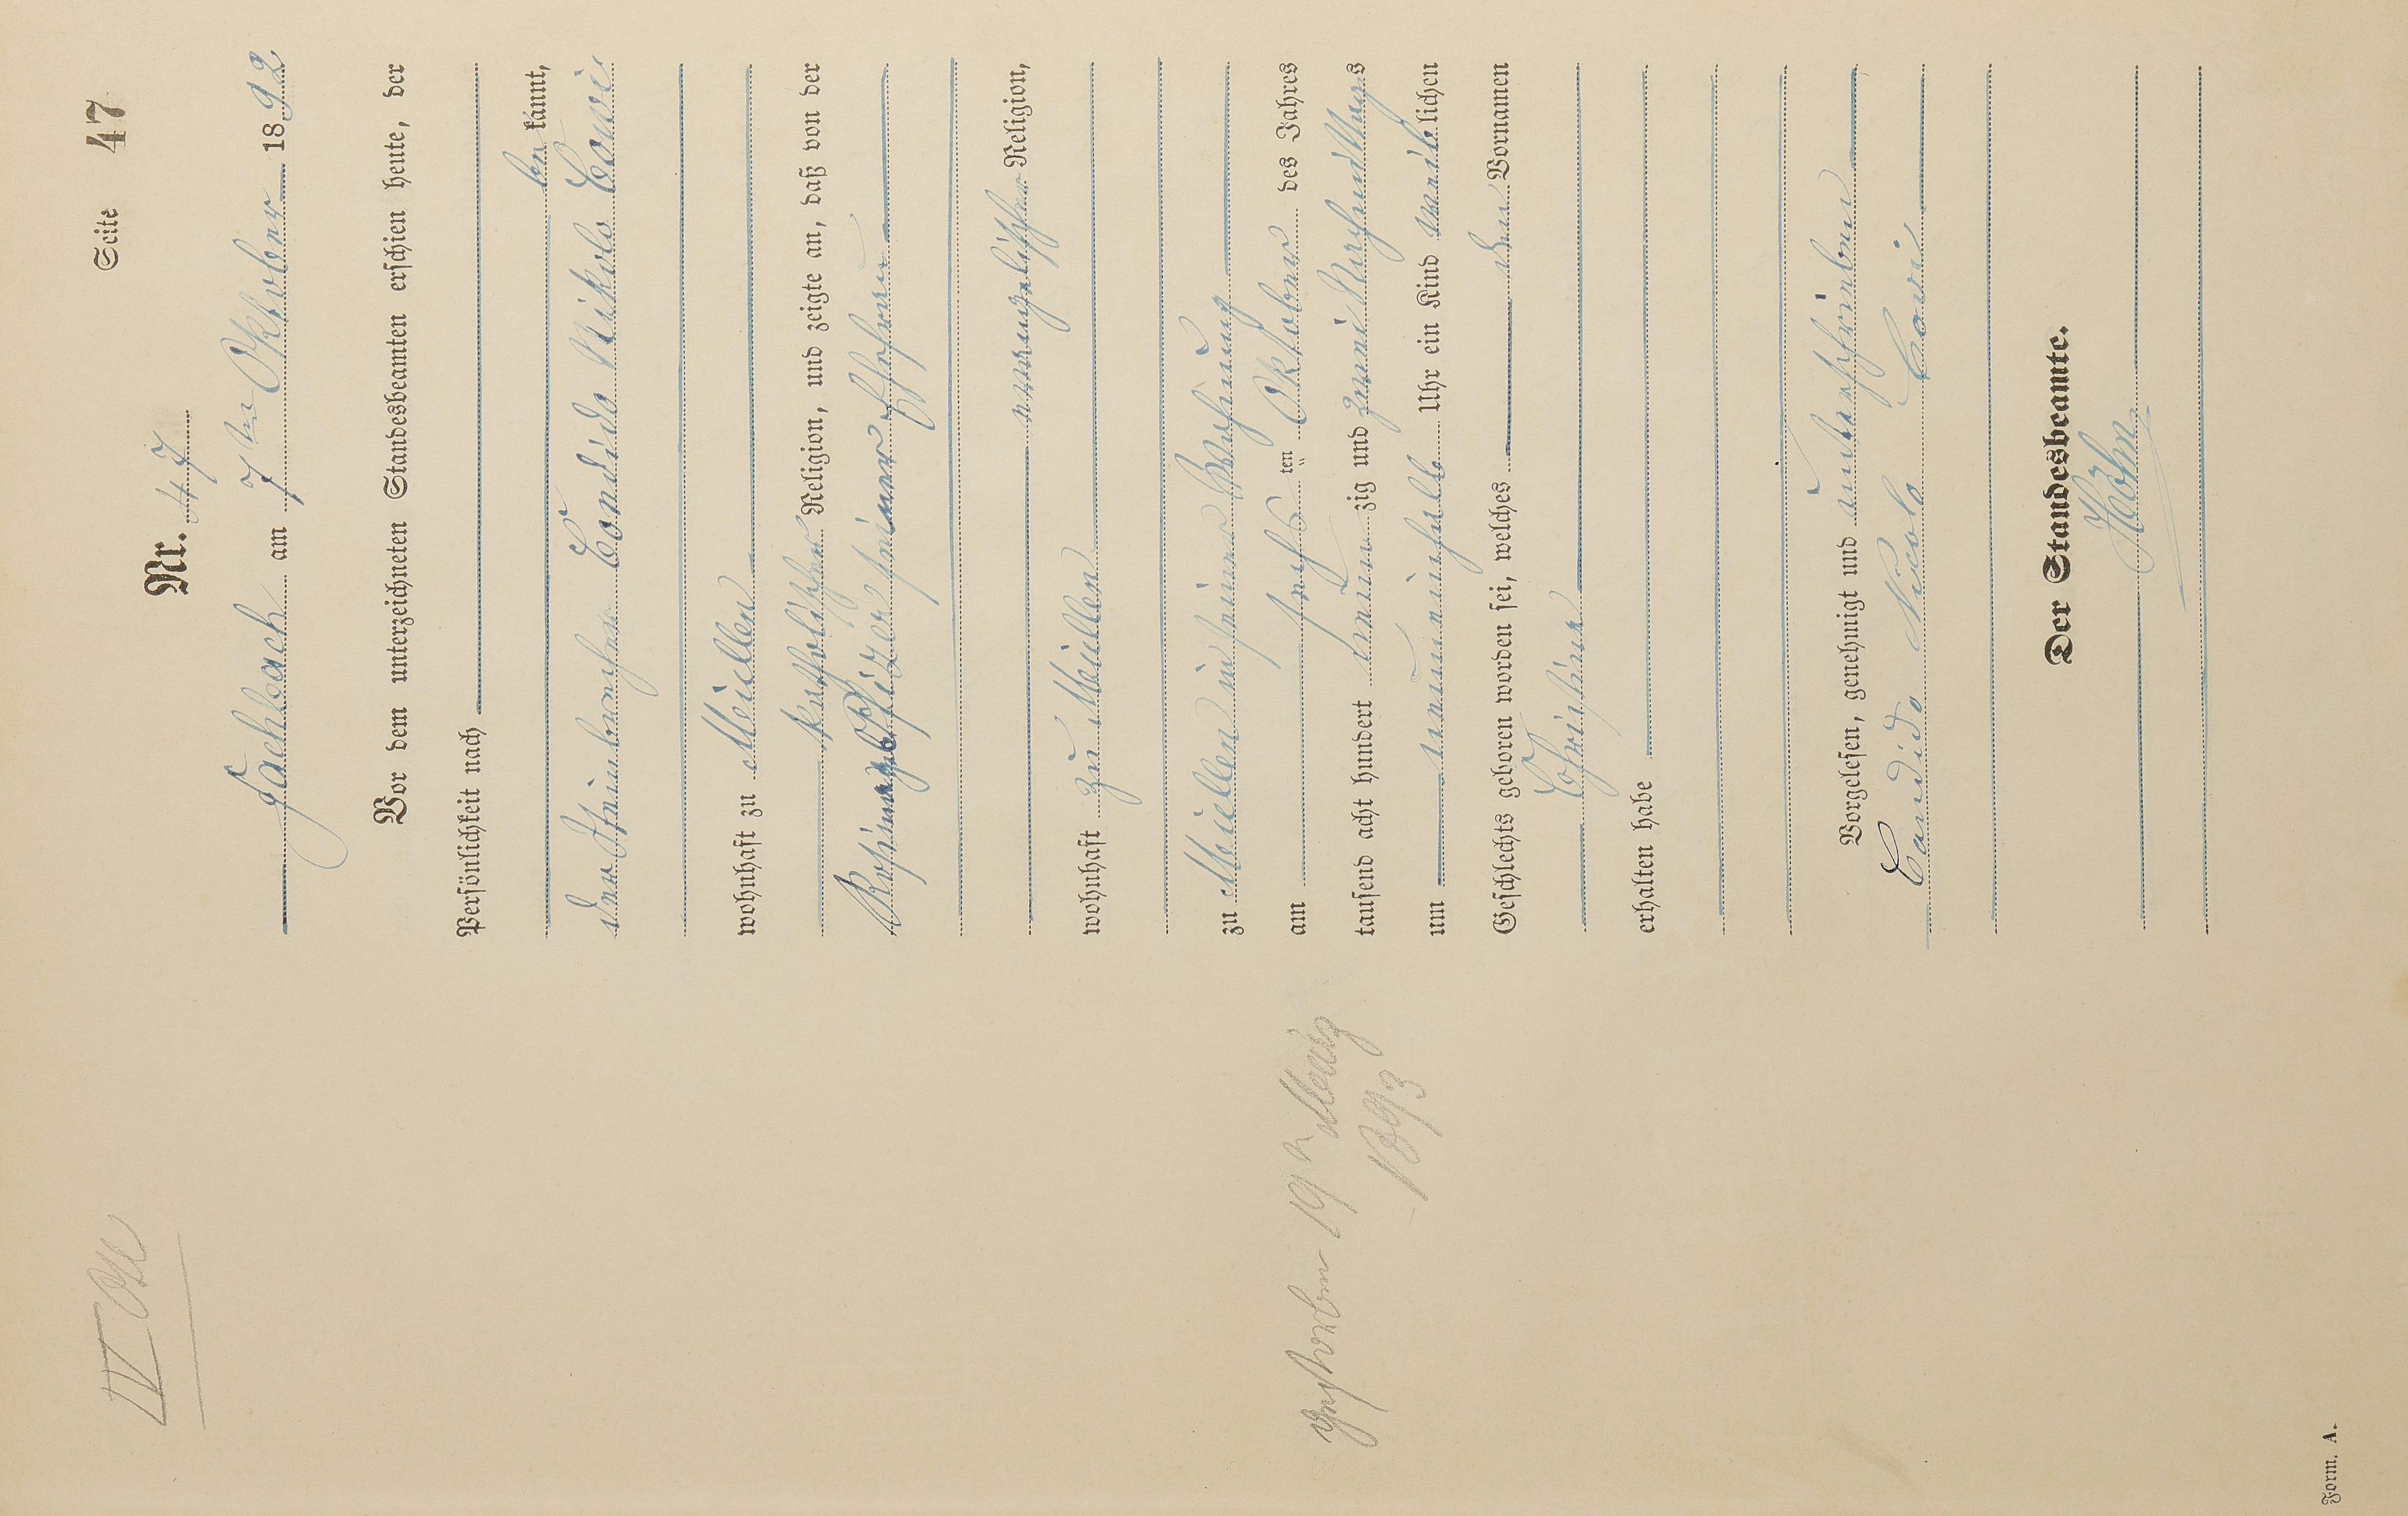 Seite 47
Nr. 47
Fachbach am 7ten Oktober 1892
Vor dem unterzeichneten Standesbeamten erschien heute, der
Persönlichkeit nach
be kannt,
der Steinbrecher Condido Nikolo Covi
wohnhaft zu Miellen
katholischer Religion, und zeigte an, daß von der
Rosina geb. seiner Ehefrau
evangelischer Religion,
wohnhaft zu Miellen
zu Miellen in seiner Wohnung
am sechs ten Oktober des Jahres
tausend acht hundert neun zig und zwei Vormittags
um neuneinhalb Uhr ein Kind weib lichen
Geschlechts geboren worden sei, welches den Vornamen
Christine
erhalten habe
Vorgelesen, genehmigt und unterschrieben
Candido Nicolo Covi
Der Standesbeamte.
Höhn
IV
gestorben 19n
1893
Form. A.